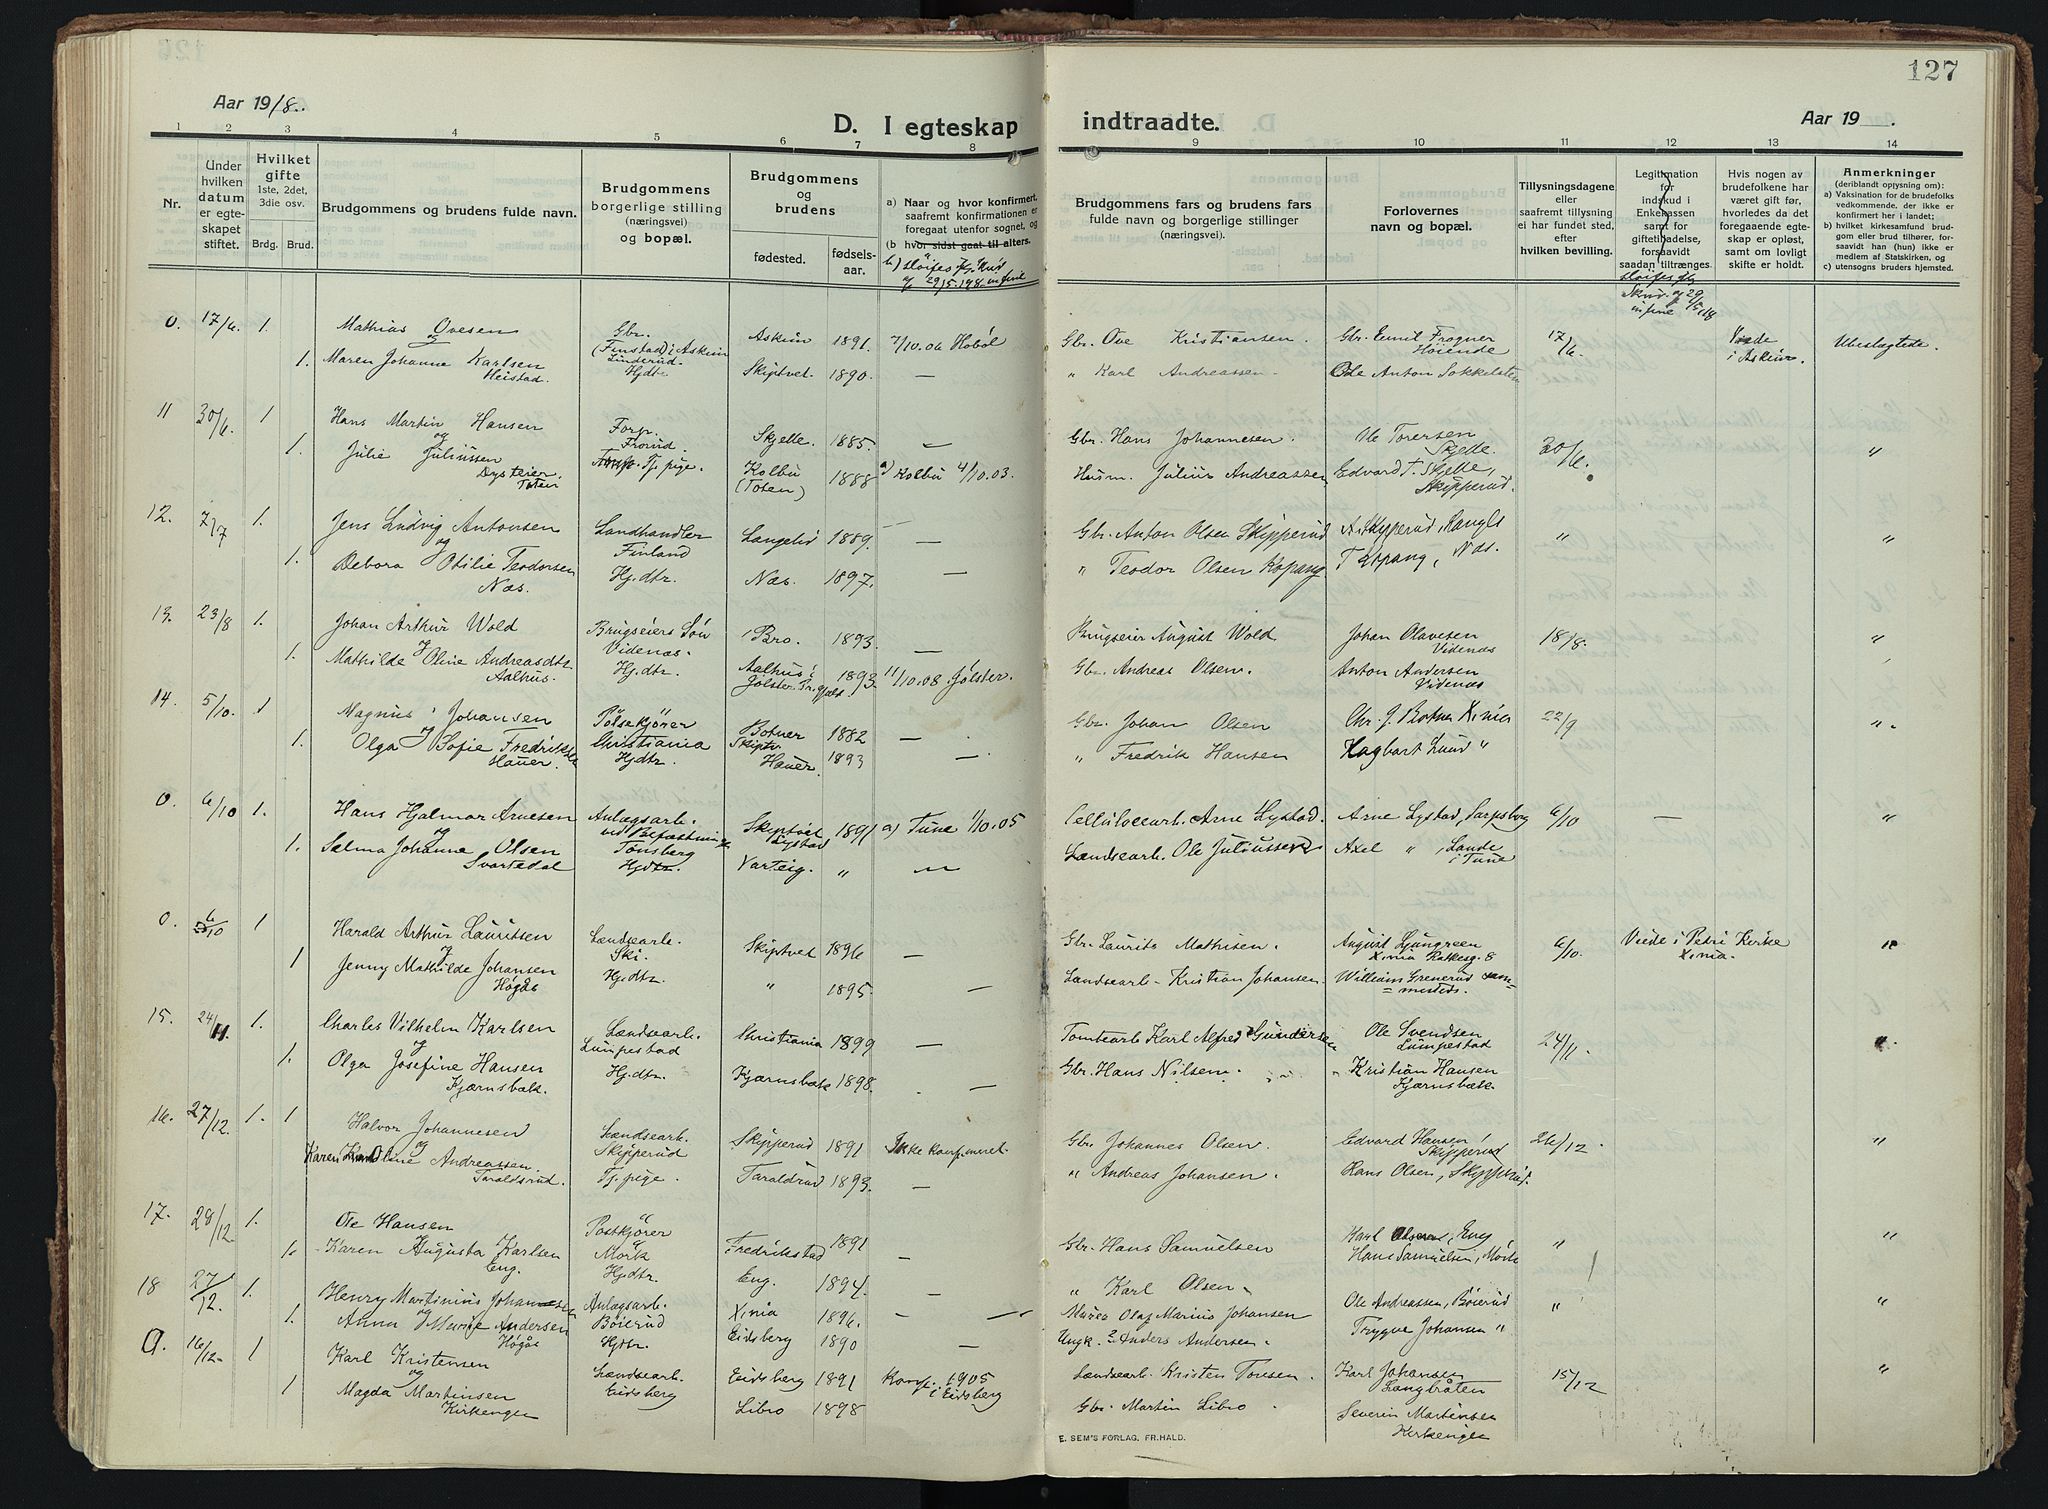 127
Aar 1918.
D. I egteskap indtraadte.
Aar 19 .
1 2 3 4 5 6 7 8 9 10 11 12 13 14
Nr.
Under hvilken datum er egteskapet stiftet.
Hvilket gifte 1ste, 2det, 3die osv.
Brdg. Brud.
Brudgommens og brudens fulde navn.
Brudgommens borgerlige stilling (næringsvei) og bopæl.
Brudgommens og brudens
fødested. fødselsaar.
a) Naar og hvor konfirmert, saafremt konfirmationen er foregaat utenfor sognet, og
(b hvor sidst gaat til alters.
Brudgommens fars og brudens fars fulde navn og borgerlige stillinger (næringsvei).
Forlovernes navn og bopæl.
Tillysningsdagene eller saafremt tillysning ei har fundet sted, efter hvilken bevilling.
Legitimation for indskud i Enkekassen samt for giftetilladelse, forsaavidt saadan tiltrænges
Hvis nogen av brudefolkene har været gift før, hvorledes da det foregaaende egteskap er opløst, samt om lovligt skifte er holdt.
Anmerkninger (deriblandt oplysning om): a) Vaksination for de brudefolks vedkommende, der ikke er konfirmert her i landet; b) hvilket kirkesamfund brudgom eller brud tilhører, forsaavidt han (hun) ikke er medlem av Statskirken, og c) utensogns bruders hjemsted.
0. 17/6. 1. Mathias Ovesen Gbr. Askim 1891. 7/10.06 Hobøl Gbr. Ove Kristiansen Gbr. Emil Frogner Høiende 17/6 i Askim. Ubeslegtede.
og (Finstad) i Askim
1. Maren Johanne Karlsen Heistad. Hjdtr. Skiptvet. 1890. — " Karl Andreassen. Ole Anton Sokkelsten
11 30/6. 1 Hans Martin Hansen Forp. Frorud. Skjelle. 1885. — Gbr. Hans Johannesen. Ole Torersen Skjelle. 30/6. "
og
1. Julie Juliussen Dysteier, Toten Tj. pige. Kolbu (Toten) 1888 a) Kolbu 4/10.03. Husm. Julius Andreassen Edvard T. Skjelle, Skipperud.
12. 7/7 1. Jens Ludvig Antonsen Landhandler Finland Langelid 1889. — Gbr. Anton Olsen Skipperud A. Skipperud, " "
og
1. Debora Otilie Teodorsen Næs. Hj.dtr. Næs. 1897. — " Teodor Olsen Kopang T. Kopang, Næs.
13. 23/8 1. Johan Arthur Wold Brugseiers Søn Videnæs. Bro. 1893. — Brugseier August Wold Johan Olavesen Videnæs 18/8. "
og
1. Mathilde Oline Andreasdtr. Aalhus. Hj.dtr. Aalhus i Jølster 1893. 11/10.08 Jølster. Gbr. Andreas Olsen. Anton Andersen Videnæs
14. 5/10. 1 Magnus Johansen Pølsekjører Christiania Botner Skiptv. 1882 — Gbr. Johan Olsen Chr. J. Botner X.nia 22/9 "
og
1. Olga Sofie Fredriksen Hauer. Hjdtr. Hauer. 1893 — " Fredrik Hansen Hagbart Lund "
0. 6/10 1. Hans Hjalmar Arnesen Anlægsarb. ved Befæstning Tønsberg Skiptvet Lystad 1891 a) Tune 1/10.05 Cellulosearb. Arne Lystad. Arne Lystad, Sarpsborg 6/10 — "
og
1. Selma Johanne Olsen Svartedal Hjdtr. Varteig. " — Lændsearb. Ole Juliussen Axel ", Lande i Tune
0. 6/10 1 Harald Arthur Lauritsen Lændsearb. Ski. Skiptvet 1896 — Gbr. Laurits Mathisen. August Ljungreen X.nia Ratkesg. 8 6/10. Viede i Petri Kirke X.nia. "
og
1 Jenny Mathilde Johansen Høgås Hj.dtr. " 1895. — Landsearb. Kristian Johansen. William Grenerud sammesteds.
15. 24/11. 1. Charles Vilhelm Karlsen Lændsearb. Lumpestad Christiania 1899 — Tomtearb. Karl Alfred Gundersen Ole Svendsen Lumpestad 24/11 "
og
1. Olga Josefine Hansen Kjærnsbæk. Hj.dtr. Kjærnsbæk 1898. — Gbr. Hans Nilsen. Kristian Hansen Kjærnsbæk
16. 27/12. 1. 1 Halvor Johannesen Lændsearb. Skipperud Skipperud 1891 Ikke konfirmeret. Gbr. Johannes Olsen. Edvard Hansen Skipperud 26/12. "
og
Karen Oline Andreassen. Taraldsrud. Tj. pige. Taraldrud 1893. — " Andreas Johansen. Hans Olsen, Skipperud.
17. 28/12. 1. Ole Hansen Postkjører Mørk Fredrikstad 1891 — Gbr. Hans Samuelsen Karl Olsen, Eng " "
1. Karen Augusta Karlsen Eng. Hjdtr. Eng. 1894. — " Karl Olsen. Hans Samuelsen, Mørk
18 27/12. 1. Henry Martinius Johansen Anlægsarb. Bøierud X.nia 1896. — Murer Olaf Marius Johansen Ole Andreassen, Bøierud " "
og
1. Anna Marie Andersen Høgås Hjdtr. Eidsberg 1890 — Ungk. ? Anders Andersen. Trygve Johansen "
O. 16/12. 1 Karl Kristensen Lændsearb. Eidsberg Eidsberg 1891 Konf. 1905 i Eidsberg Landsearb. Kristen Tonsen. Karl Johansen Langbråten 15/12 "
og
1 Magda Martinsen Kirkengen Libro 1898 Gbr. Martin Libro. Severin Martinsen Kirkengen
E. SEM'S FORLAG. FR.HALD.